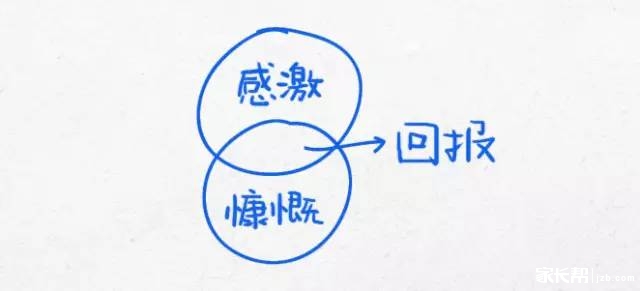 感激
回报
慷慨
家长帮 jzb.com